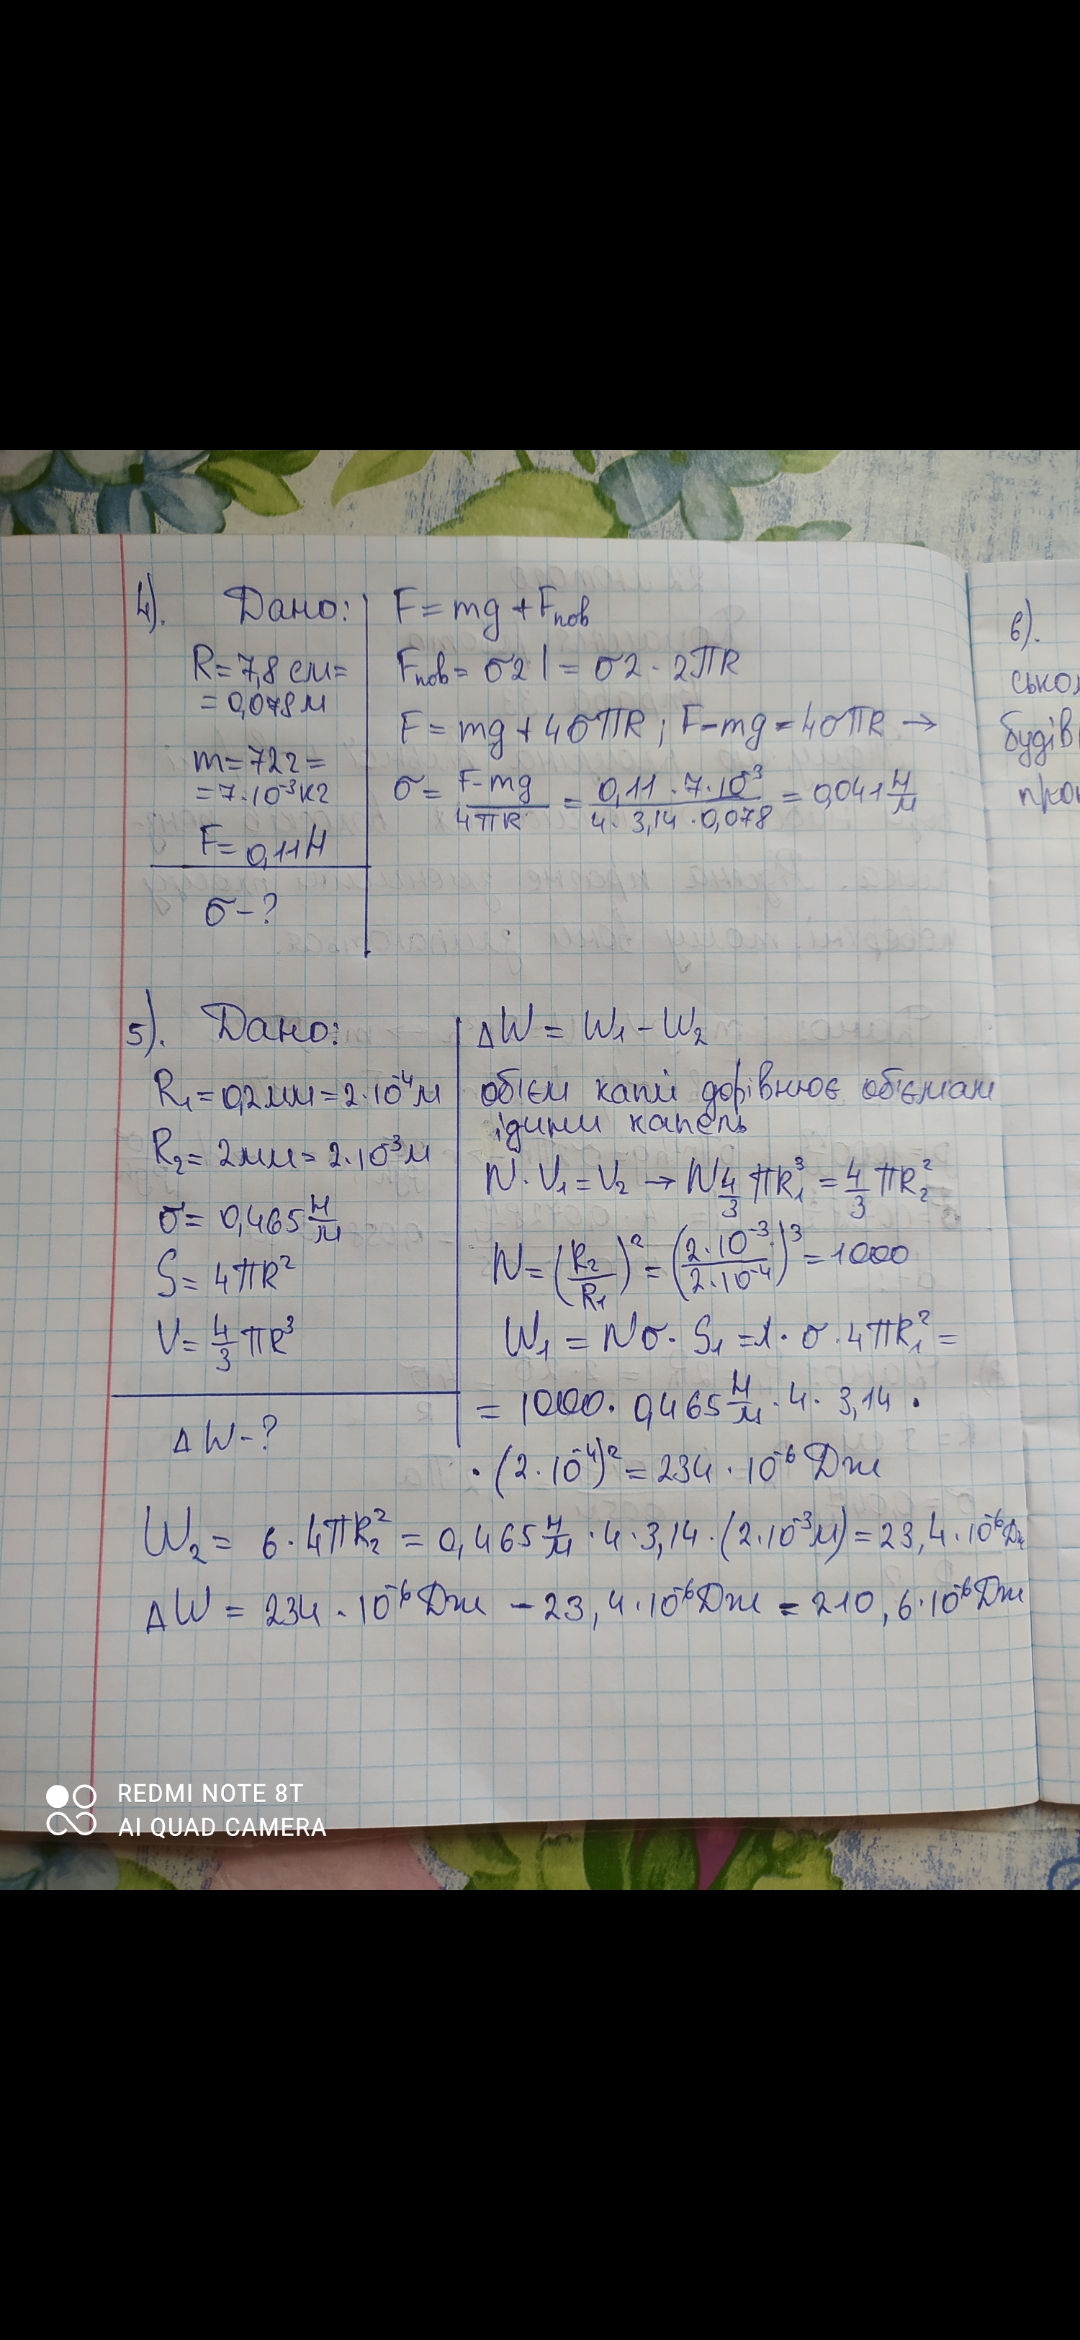 4). Дано:
R=7,8 см=
=0,078м
m=72г=
=7·10⁻³кг
F=0,11Н
σ-?
F=mg+Fпов
Fпов=σ2l=σ2·2πR
F=mg+4σπR; F-mg=4σπR→
σ=(F-mg)/(4πR)=(0,11·7·10⁻³)/(4·3,14·0,078)=0,041 Н/м
5). Дано:
R₁=0,2мм=2·10⁻⁴м
R₂=2мм=2·10⁻³м
σ=0,465 Н/м
S=4πR²
V=4/3 πR³
ΔW-?
ΔW=W₁-W₂
об'єм капй дорівнює об'ємам
ідини капель
N·V₁=V₂→N 4/3 πR₁³=4/3 πR₂²
N=(R₂/R₁)²=(2·10⁻³/2·10⁻⁴)³=1000
W₁=Nσ·S₁=1·σ·4πR₁²=
=1000·0,465 Н/м·4·3,14·
·(2·10⁻⁴)²=234·10⁻⁶Дж
W₂=6·4πR₂²=0,465 Н/м·4·3,14·(2·10⁻³м)=23,4·10⁻⁶Дж
ΔW=234·10⁻⁶Дж-23,4·10⁻⁶Дж=210,6·10⁻⁶Дж
6).
будів
REDMI NOTE 8T
AI QUAD CAMERA